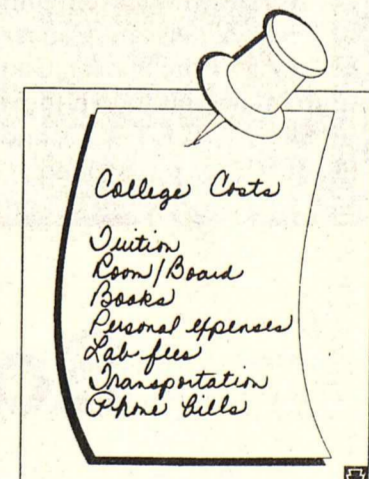 College Costs
Tuition
Room/Board
Books
Personal expenses
Lab fees
Transportation
Phone bills